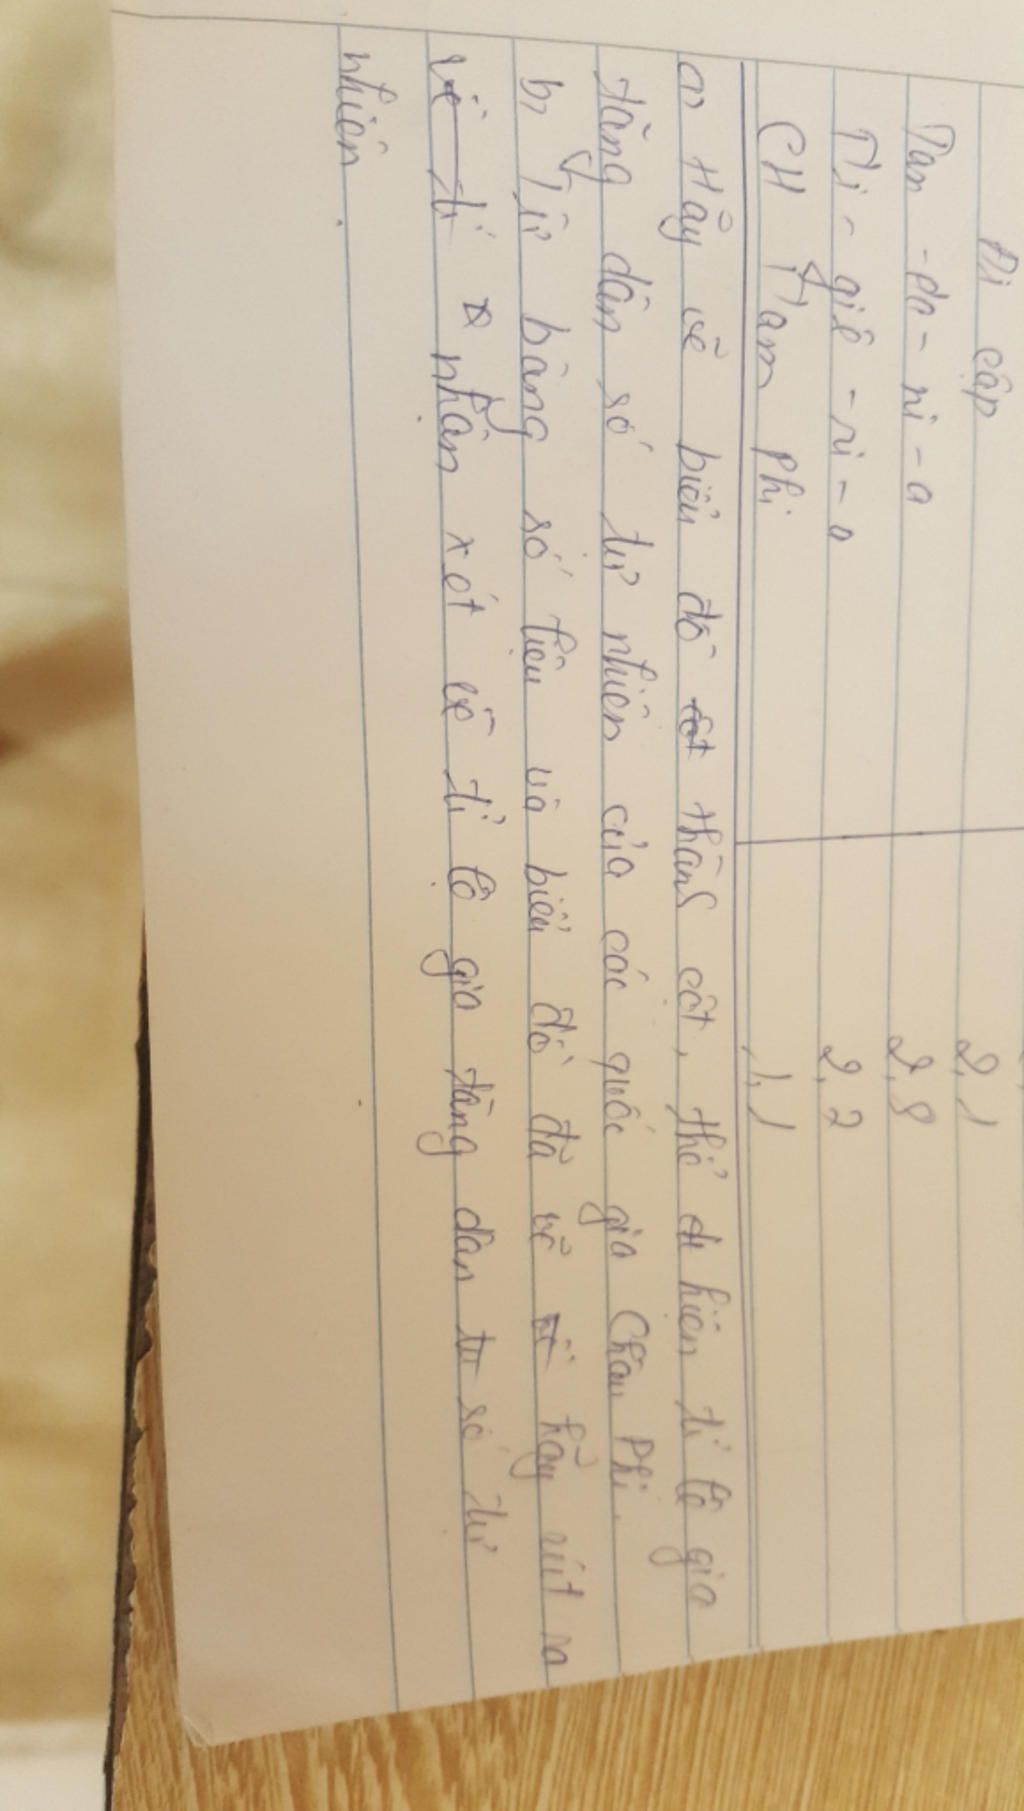 Ai cập 2,1
Tan-da-ni-a 2,8
Ni-giê-ri-a 2,7
CH Nam Phi 1,1
a, Hãy vẽ biểu đồ thành cột, thể hiện tỉ lệ gia
tăng dân số tự nhiên của các quốc gia Châu Phi.
b, Từ bảng số liệu và biểu đồ đã vẽ hãy rút ra
nhận xét về tỉ lệ gia tăng dân số tự
nhiên.